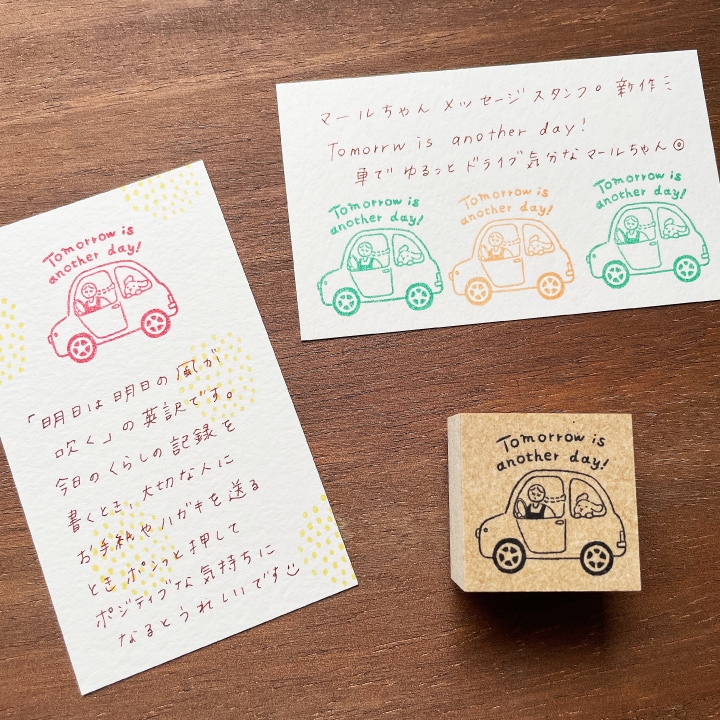 マールちゃん メッセージスタンプ。新作
Tomorrw is another day!
車でゆるっとドライブ気分なマールちゃん
Tomorrow is
another day!
Tomorrow is
another day!
Tomorrow is
another day!
Tomorrow is
another day!
「明日は明日の風が
吹く」の英訳です。
今日のくらしの記録を
書くとき、大切な人に
お手紙やハガキを送る
ときポンっと押して
ポジティブな気持ちに
なるとうれしいです
Tomorrow is
another day!